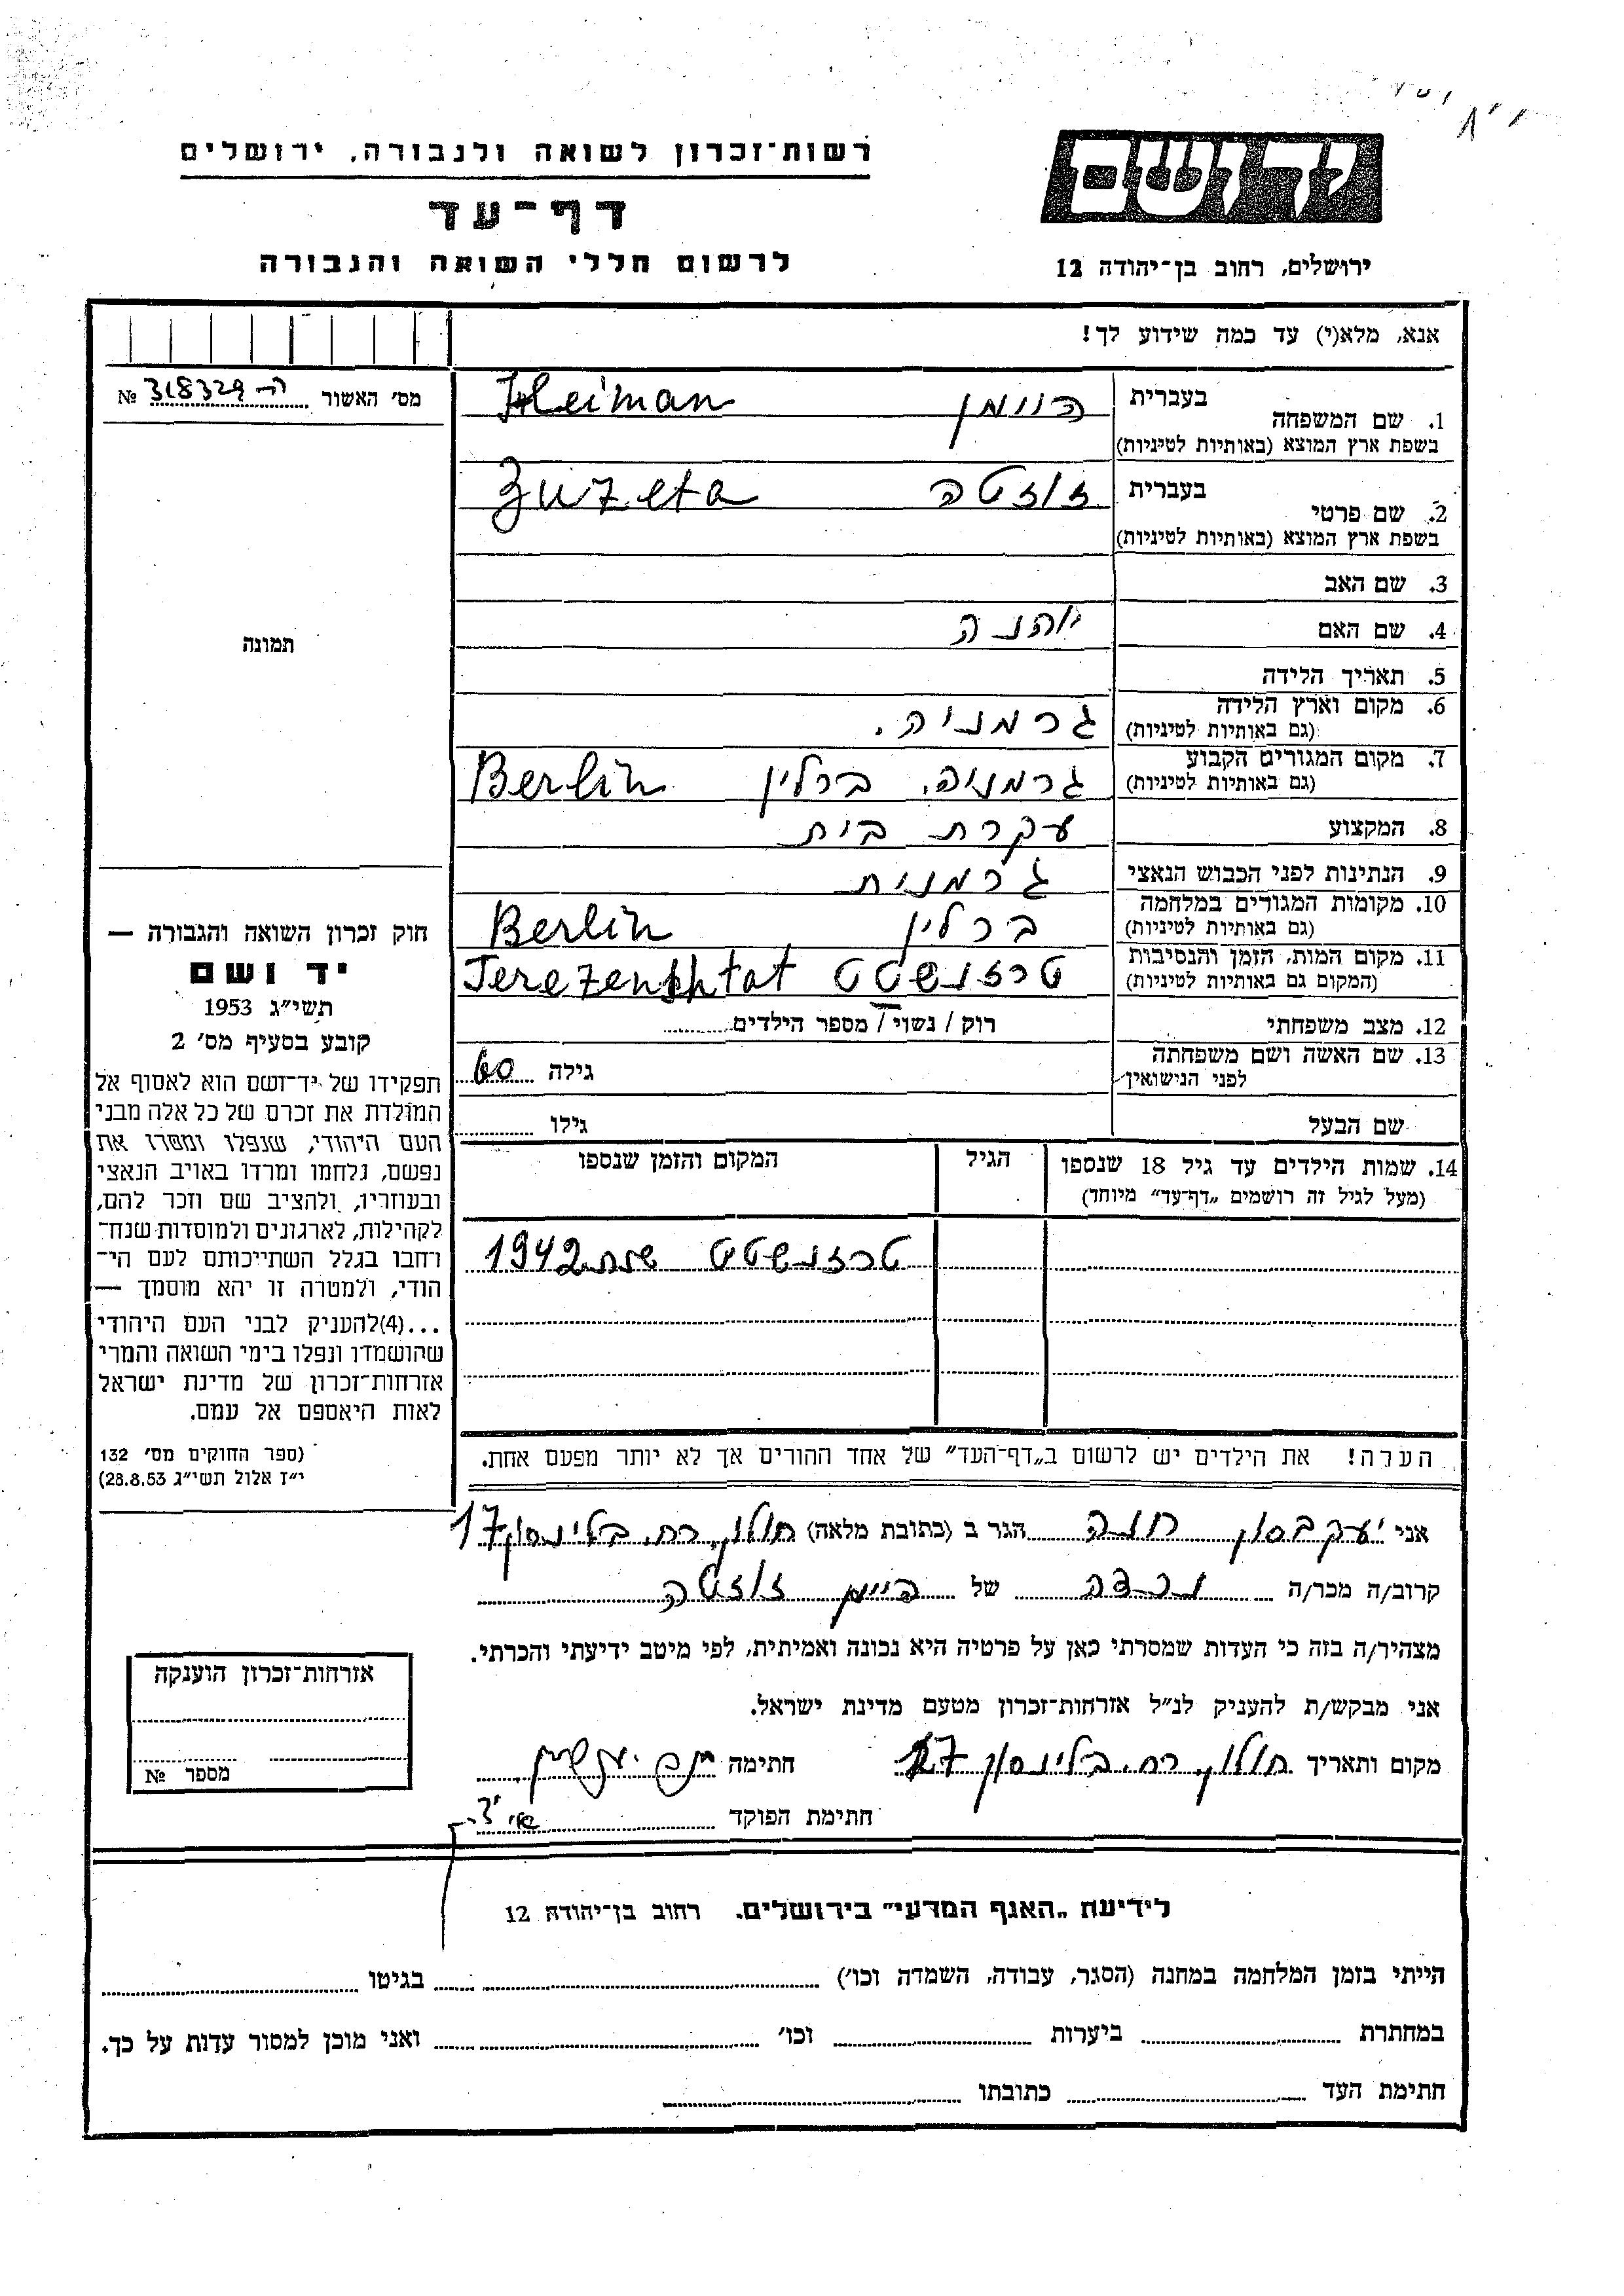 יד ושם
רשות־זכרון לשואה ולגבורה, ירושלים
דף־עד
ירושלים, רחוב בן־יהודה 12
לרשום חללי השואה והגבורה
אנא, מלא(י) עד כמה שידוע לך!
מס׳ האשור № 318329־ה
1. שם המשפחה
בעברית היימן Heiman
בשפת ארץ המוצא (באותיות לטיניות)
2. שם פרטי
בעברית זוזטה Zuzeta
בשפת ארץ המוצא (באותיות לטיניות)
3. שם האב
4. שם האם יוהנה
5. תאריך הלידה
6. מקום וארץ הלידה גרמניה.
(גם באותיות לטיניות)
7. מקום המגורים הקבוע גרמניה, ברלין Berlin
(גם באותיות לטיניות)
8. המקצוע עקרת בית
9. הנתינות לפני הכבוש הנאצי גרמנית
10. מקומות המגורים במלחמה ברלין Berlin
(גם באותיות לטיניות)
11. מקום המות, הזמן והנסיבות טרזנשטט Terezenshtat
(המקום גם באותיות לטיניות)
12. מצב משפחתי רוק / נשוי / מספר הילדים
13. שם האשה ושם משפחתה
לפני הנישואין גילה 60
שם הבעל גילו
14. שמות הילדים עד גיל 18 שנספו הגיל המקום והזמן שנספו
(מעל לגיל זה רושמים „דף־עד״ מיוחד)
טרזנשטט שנת 1942
הערה! את הילדים יש לרשום ב„דף־העד״ של אחד ההורים אך לא יותר מפעם אחת.
תמונה
חוק זכרון השואה והגבורה —
יד ושם
תשי״ג 1953
קובע בסעיף מס׳ 2
תפקידו של יד־ושם הוא לאסוף אל
המולדת את זכרם של כל אלה מבני
העם היהודי, שנפלו ומסרו את
נפשם, נלחמו ומרדו באויב הנאצי
ובעוזריו, ולהציב שם וזכר להם,
לקהילות, לארגונים ולמוסדות שנח־
רחבו בגלל השתייכותם לעם הי־
הודי, ולמטרה זו יהא מוסמך —
...(4)להעניק לבני העם היהודי
שהושמדו ונפלו בימי השואה והמרי
אזרחות־זכרון של מדינת ישראל
לאות היאספם אל עמם.
(ספר החוקים מס׳ 132
י״ז אלול תשי״ג 28.8.53)
אני יעקבסון חנה הגר ב (כתובת מלאה) חולון, רח. בלינסון 17
קרוב/ה מכר/ה נכדה של היימן זוזטה
מצהיר/ה בזה כי העדות שמסרתי כאן על פרטיה היא נכונה ואמיתית, לפי מיטב ידיעתי והכרתי.
אני מבקש/ת להעניק לנ״ל אזרחות־זכרון מטעם מדינת ישראל.
מקום ותאריך חולון, רח. בלינסון 17 חתימה
חתימת הפוקד
אזרחות־זכרון הוענקה
מספר №
לידיעת „האגף המדעי״ בירושלים. רחוב בן־יהודה 12
הייתי בזמן המלחמה במחנה (הסגר, עבודה, השמדה וכו׳) בגיטו
במחתרת ביערות וכו׳ ואני מוכן למסור עדות על כך.
חתימת העד כתובתו